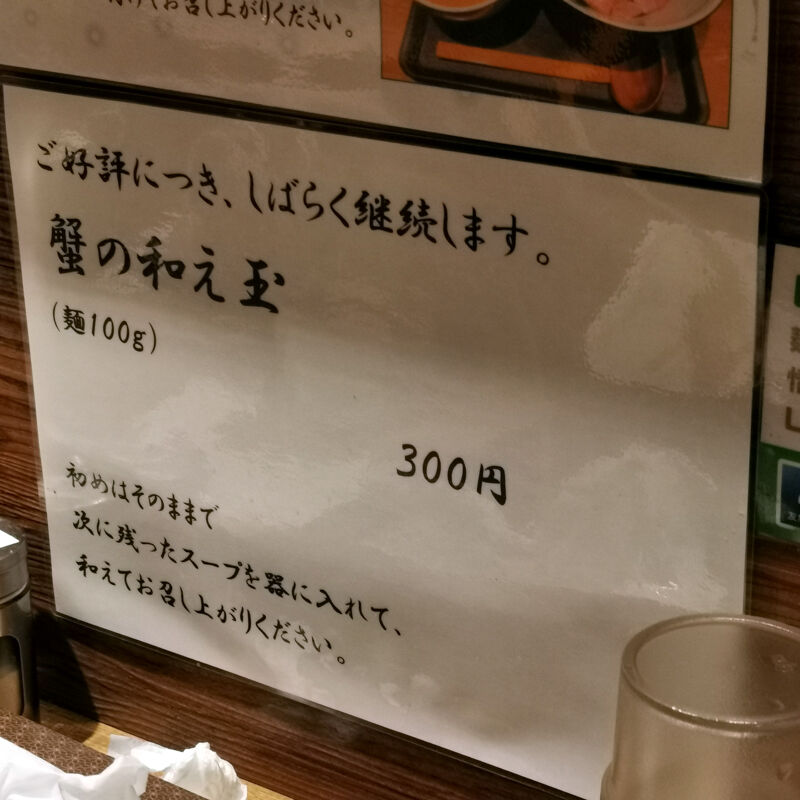 てお召し上がりください。
ご好評につき、しばらく継続します。
蟹の和え玉
(麺100g)
300円
初めはそのままで
次に残ったスープを器に入れて、
和えてお召し上がりください。